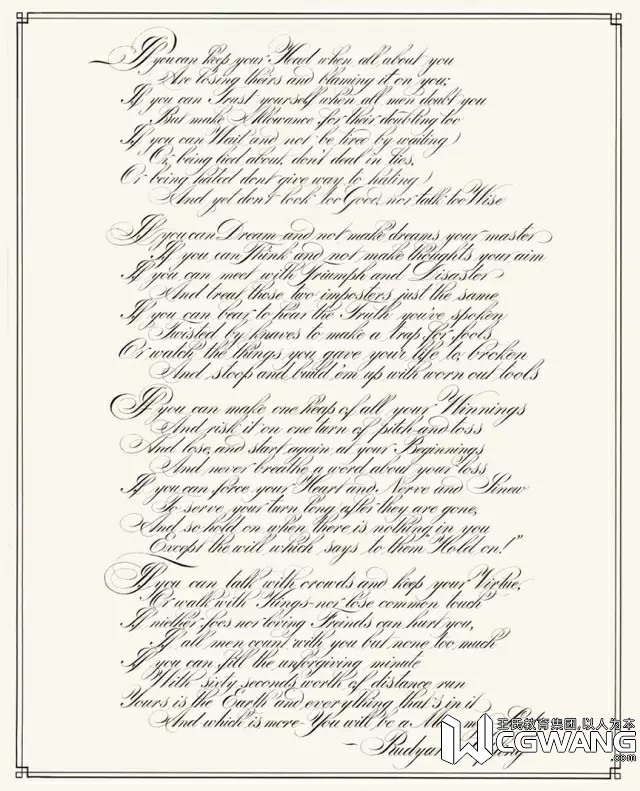 If you can keep your Head when all about you
Are losing theirs and blaming it on you;
If you can Trust yourself when all men doubt you
But make Allowance for their doubting too
If you can Wait and not be tired by waiting
Or, being lied about, don't deal in lies,
Or being hated dont give way to hating
And yet don't look too Good, nor talk too Wise
If you can Dream and not make dreams your master
If you can Think and not make thoughts your aim
If you can meet with Triumph and Disaster
And treat those two imposters just the same
If you can bear to hear the Truth you've spoken
Twisted by knaves to make a trap for fools
Or watch the things you gave your life to, broken
And stoop and build 'em up with worn out tools
If you can make one heap of all your Winnings
And risk it on one turn of pitch and toss
And lose, and start again at your Beginnings
And never breathe a word about your loss
If you can force your Heart and Nerve and Sinew
To serve your turn long after they are gone,
And so hold on when there is nothing in you
Except the will which says to them Hold on!"
If you can talk with crowds and keep your Virtue,
Or walk with Kings nor lose common touch
If niether foes nor loving Freinds can hurt you,
If all men count with you but none too much
If you can fill the unforgiving minute
With sixty seconds worth of distance run
Yours is the Earth and everything that's in it
And which is more You will be a Man my
王氏教育集团,以人为本
CGWANG
.com